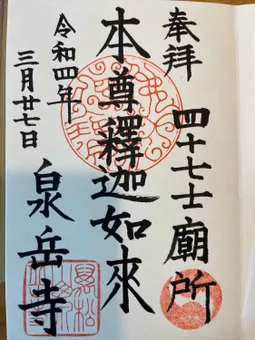 奉拝
四十七士廟所
本尊釋迦如來
令和四年
三月廿七日
泉岳寺